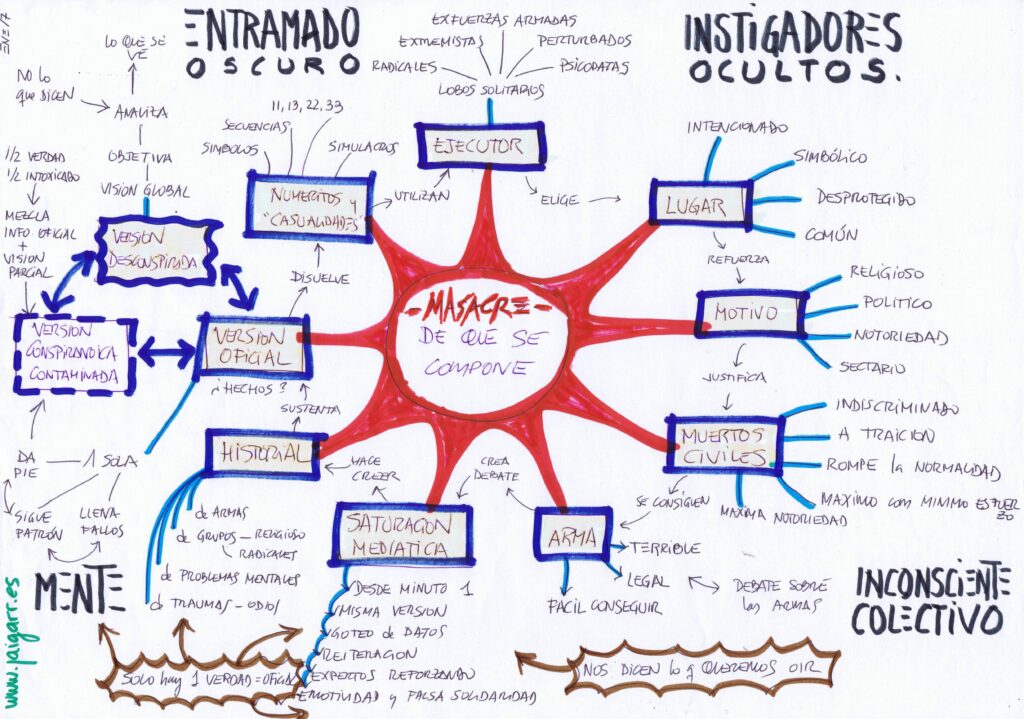 ENE/17
ENTRAMADO
OSCURO
INSTIGADORES
OCULTOS.
EXFUERZAS ARMADAS
EXTREMISTAS
PERTURBADOS
RADICALES
PSICOPATAS
LOBOS SOLITARIOS
EJECUTOR
UTILIZAN
ELIGE
LO QUE SE
VE
NO LO
que DICEN
ANALIZA
OBJETIVA
VISION GLOBAL
1/2 VERDAD
1/2 INTOXICADO
MEZCLA
INFO OFICIAL
+
VISION
PARCIAL
VERSION
DESCONSPIRADA
11, 13, 22, 33
SECUENCIAS
SIMBOLOS
SIMULACROS
NUMERITOS y
"CASUALIDADES"
DISUELVE
INTENCIONADO
SIMBÓLICO
DESPROTEGIDO
COMÚN
LUGAR
REFUERZA
RELIGIOSO
POLITICO
NOTORIEDAD
SECTARIO
MOTIVO
JUSTIFICA
-MASACRE-
DE QUE SE
COMPONE
VERSION
CONSPIRANOICA
CONTAMINADA
VERSION
OFICIAL
¿HECHOS?
SUSTENTA
INDISCRIMINADO
A TRAICION
ROMPE la NORMALIDAD
MAXIMO con MINIMO ESFUER
ZO
MAXIMA NOTORIEDAD
MUERTOS
CIVILES
SE CONSIGUEN
HISTORIAL
HACE
CREER
CREA
DEBATE
DA
PIE
1 SOLA
SIGUE
PATRÓN
LLENA
FALLOS
de ARMAS
de GRUPOS - RELIGIOSO
RADICALES
de PROBLEMAS MENTALES
de TRAUMAS - ODIOS
SATURACION
MEDIATICA
DESDE MINUTO 1
MISMA VERSION
GOTEO de DATOS
REITERACION
EXPERTOS REFORZANDO
EMOTIVIDAD y FALSA SOLIDARIDAD
ARMA
TERRIBLE
LEGAL
FACIL CONSEGUIR
DEBATE SOBRE
las ARMAS
MENTE
INCONSCIENTE
COLECTIVO
SOLO hay 1 VERDAD = OFICIAL
NOS DICEN lo q QUEREMOS OIR
www.jaigarr.es